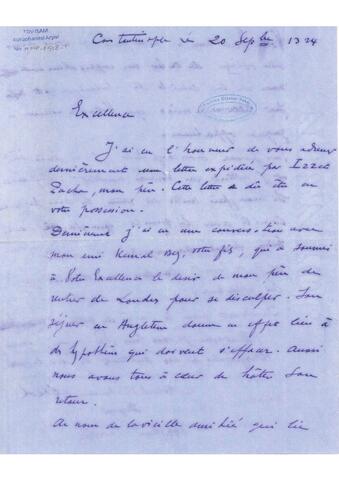 TDV İSAM
Constantinople le 20 Septbre 1324
Excellence
J'ai eu l'honneur de vous adresser
dernièrement une lettre expédiée par Izzet
Pacha, mon père. Cette lettre a dû être en
votre possession.
Dernièrement j'ai eu une conversation avec
mon ami Kemal Bey, votre fils, qui a soumis
à Votre Excellence le désir de mon père de
rentrer de Londres pour se disculper. Son
séjour en Angleterre donne en effet lieu à
des hypothèses qui doivent s'effacer. Aussi
nous avons tous à cœur de hâter son
retour.
Au nom de la vieille amitié qui lie